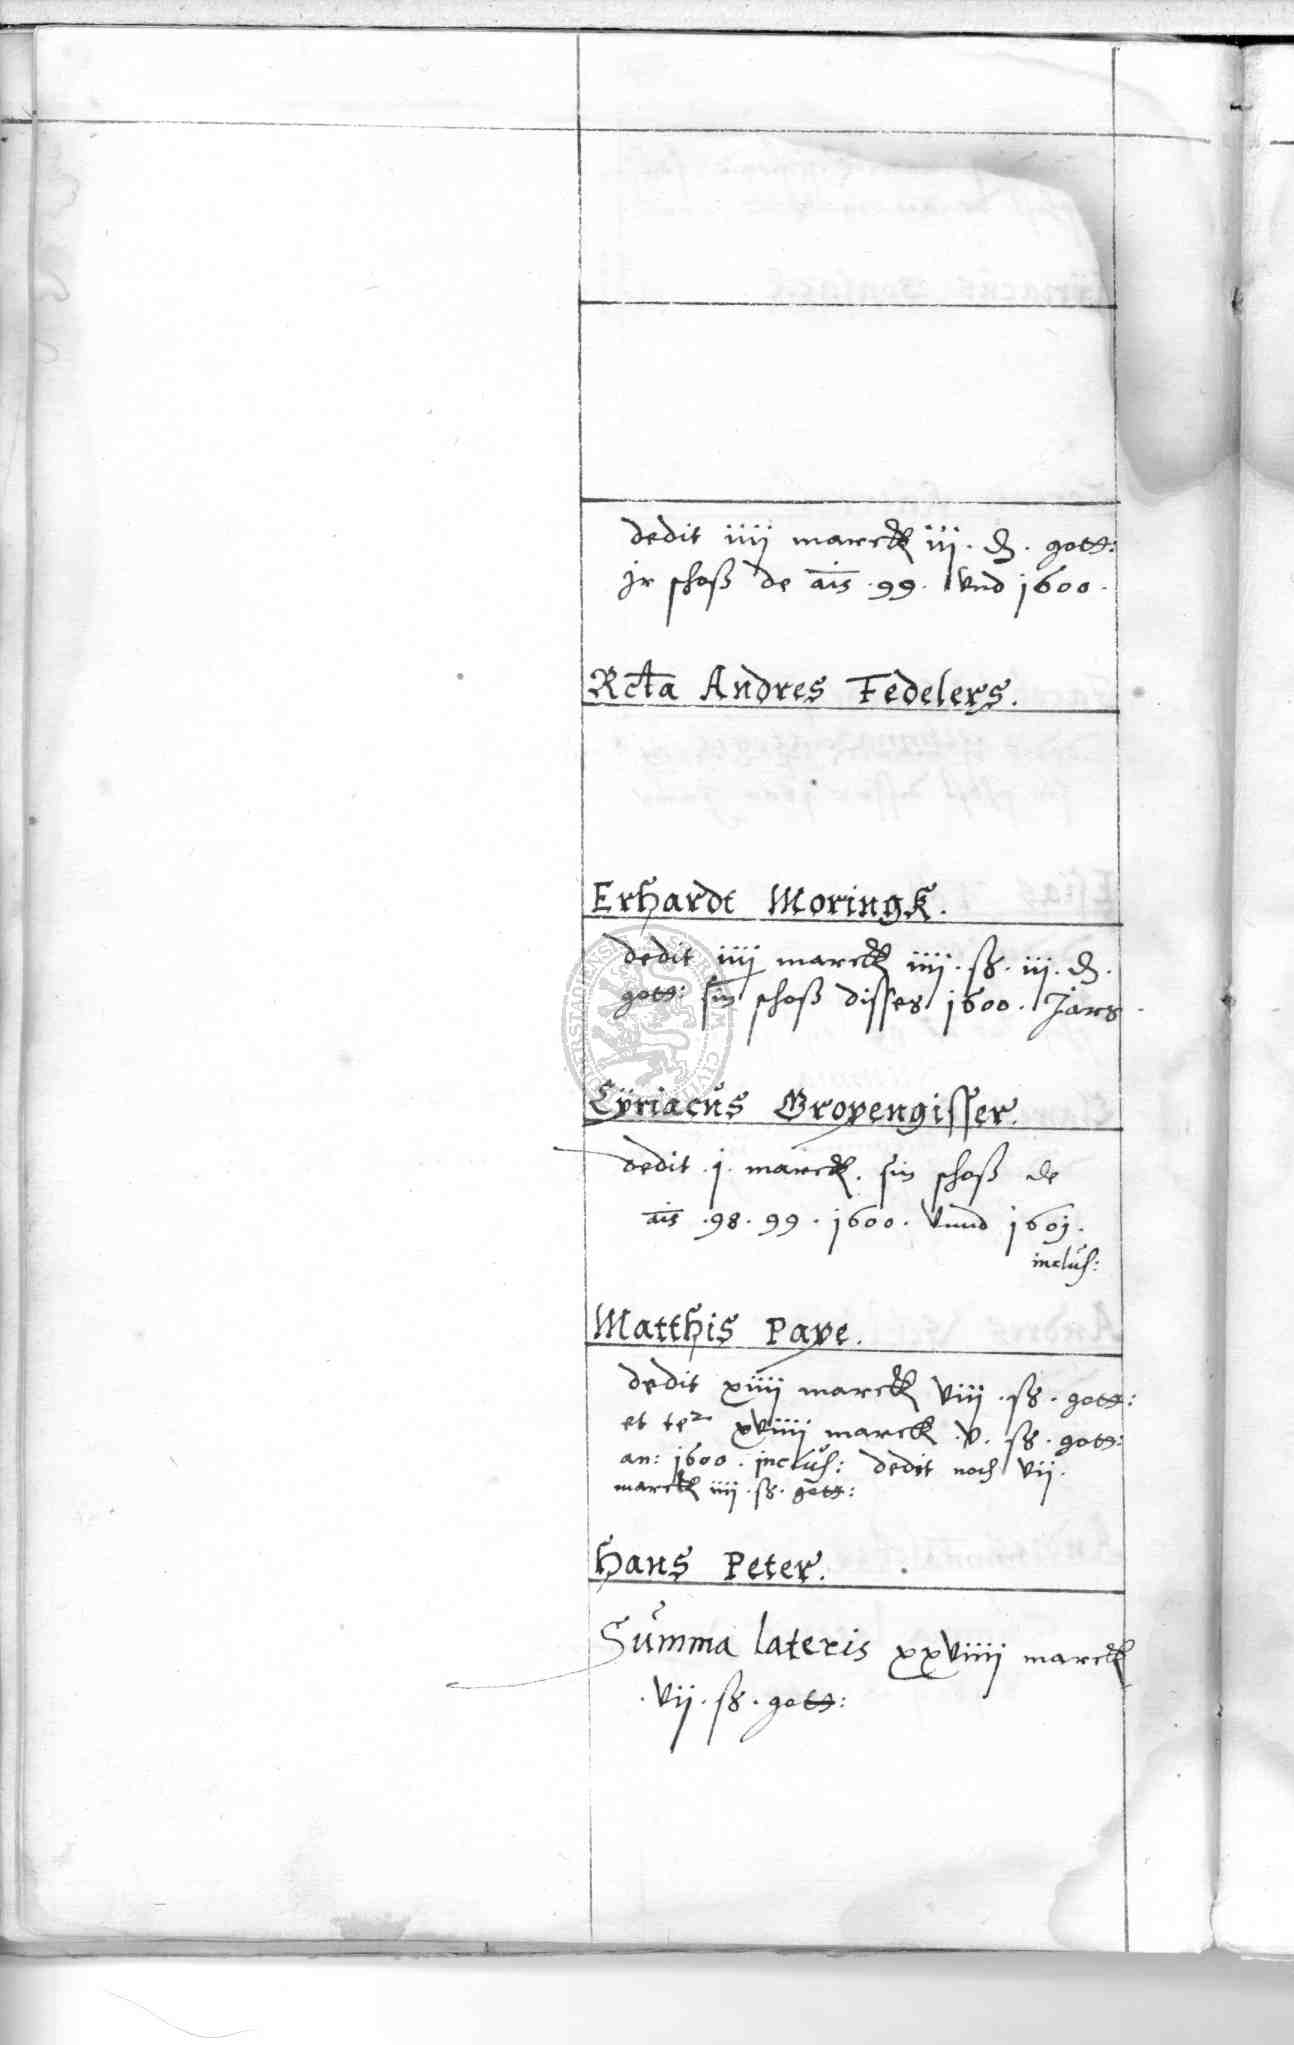 dedit iiij marck iij. ₰. gott:
jr schoß de ais .99. vnd 1600.
Rcta Andres Fedelers.
Erhardt Moringk.
dedit iiij marck iiij. ß. iij. ₰.
gott: sin schoß disses 1600. Jars
Cÿriacus Gropengisser.
dedit .j. marck. sin schoß de
ais .98. 99. 1600. vnnd 1601.
inclus:
Matthis Pape.
dedit xiiij marck viij .ß. gott:
et te xviiij marck .v. ß. gott:
an: 1600. inclus: dedit noch vij.
marck iiij .ß. gott:
Hans Peter.
Summa lateris xxviiij marck
.vij. ß. gott: